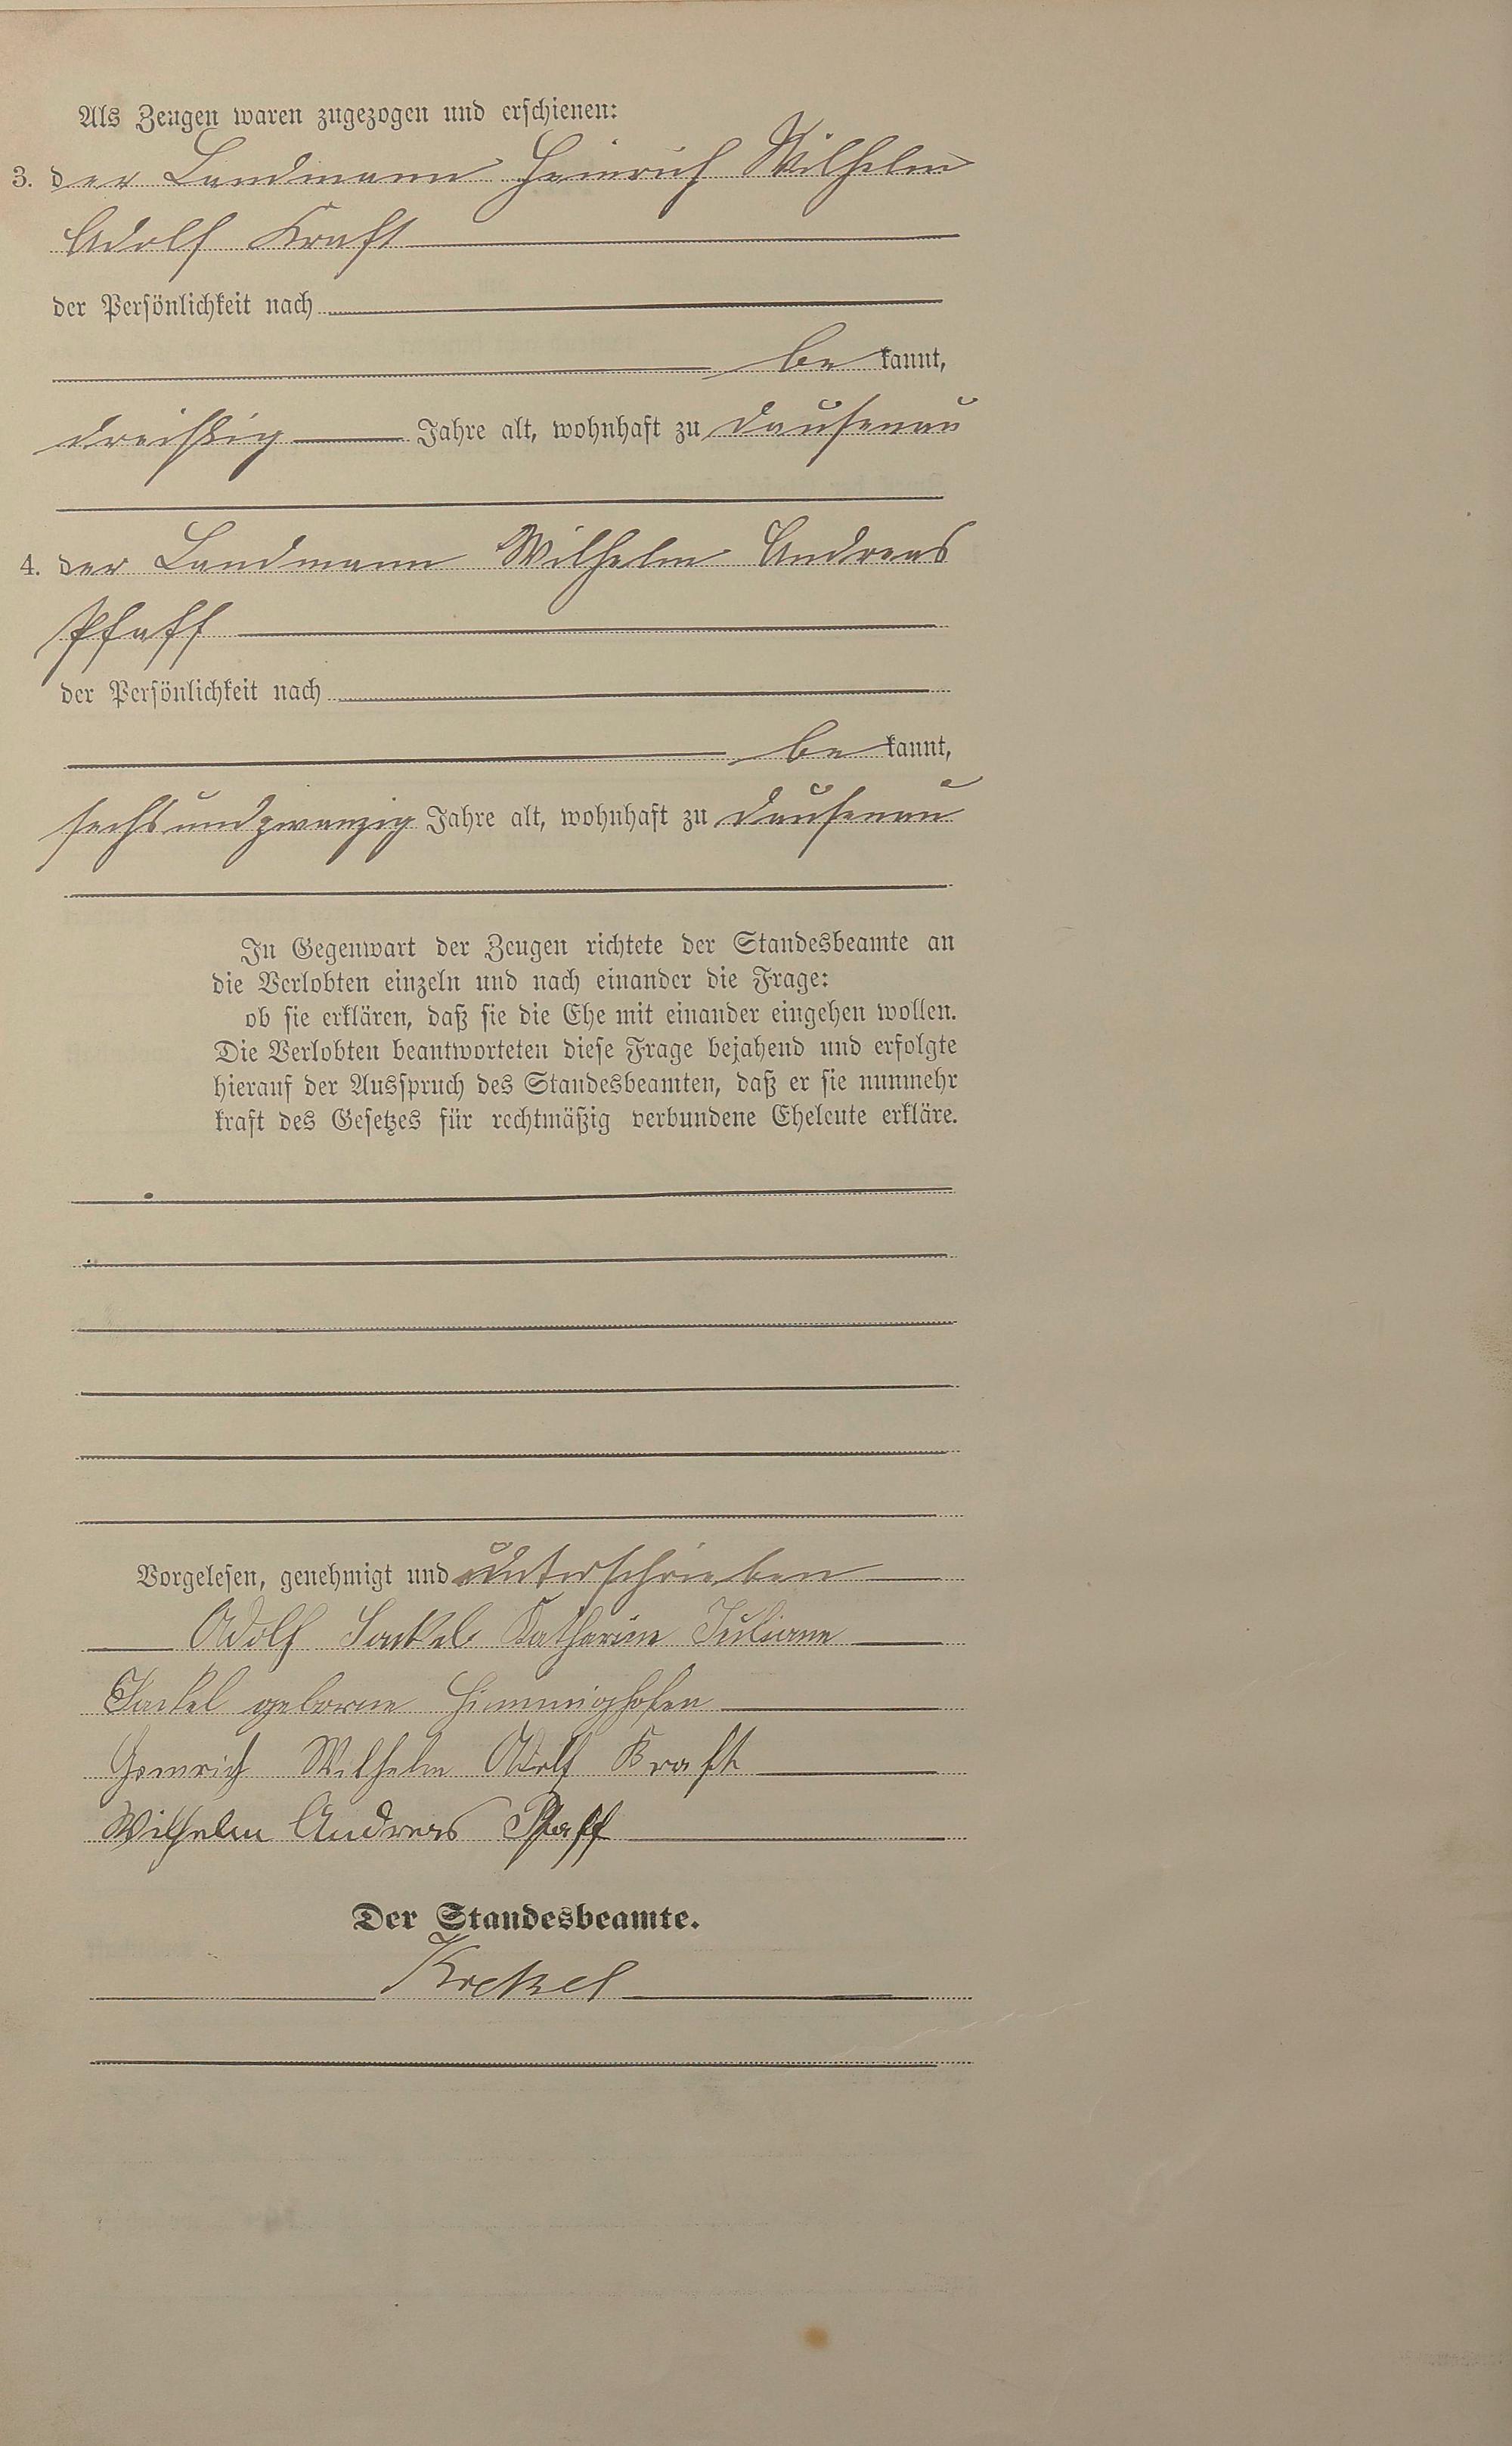 Als Zeugen waren zugezogen und erschienen:
3. der Landmann Heinrich Wilhelm
Adolf Kraft
der Persönlichkeit nach
be kannt,
dreißig Jahre alt, wohnhaft zu Dausenau
4. der Landmann Wilhelm Andreas
Pfaff
der Persönlichkeit nach
be kannt,
sechsundzwanzig Jahre alt, wohnhaft zu Dausenau
In Gegenwart der Zeugen richtete der Standesbeamte an
die Verlobten einzeln und nach einander die Frage:
ob sie erklären, daß sie die Ehe mit einander eingehen wollen.
Die Verlobten beantworteten diese Frage bejahend und erfolgte
hierauf der Ausspruch des Standesbeamten, daß er sie nunmehr
kraft des Gesetzes für rechtmäßig verbundene Eheleute erkläre.
Vorgelesen, genehmigt und unterschrieben
Adolf Katharine Juliane
geborne Himmighofen
Heinrich Wilhelm Adolf Kraft
Wilhelm Andreas Pfaff
Der Standesbeamte.
Krekel